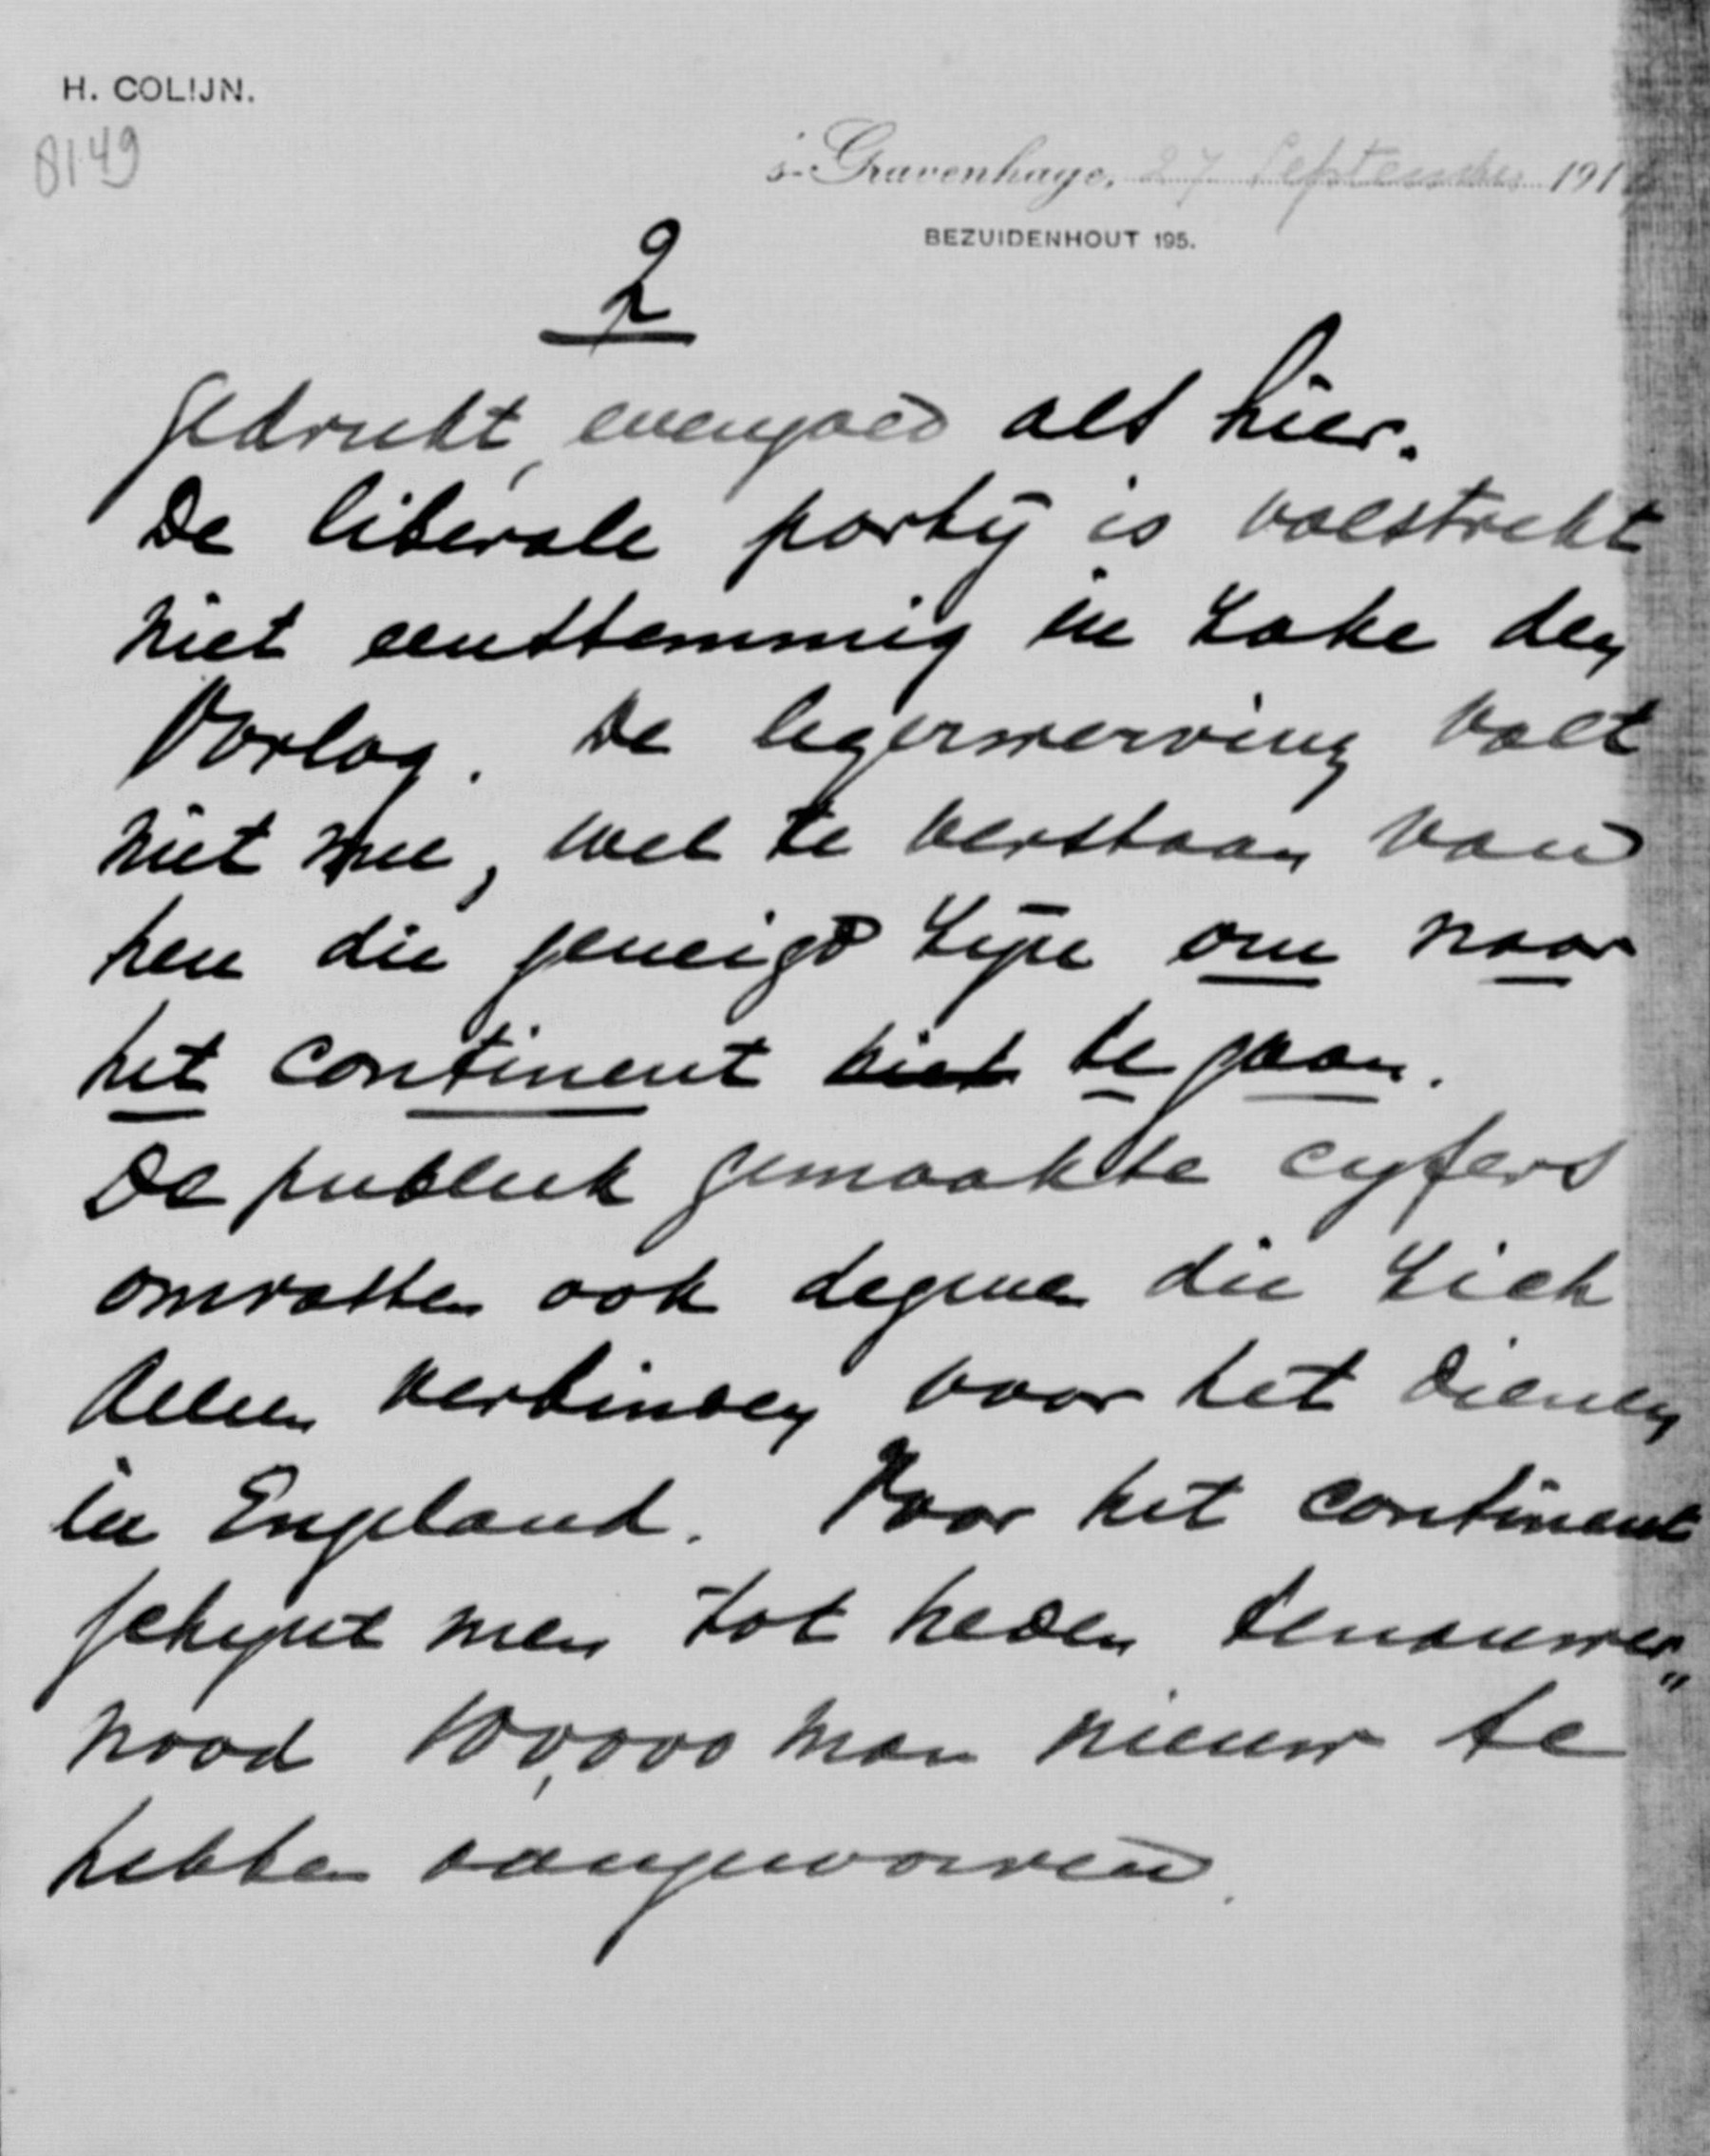 H. COLIJN.
8149
's-Gravenhage, 27 September 191
BEZUIDENHOUT 195.
2
gedrukt, evengoed als hier.
De liberale party is volstrekt
niet eenstemmig in zake den
Oorlog. De legerwerving valt
niet mee, wel te verstaan van
hen die geneigd zijn om naar
het continent niet te gaan.
De publiek gemaakte cyfers
omvatten ook degenen die zich
alleen verbinden voor het dienen
in Engeland. Voor het continent
schynt men tot heden tenauwer„
nood 100,000 man nieuw te
hebben aangeworven.